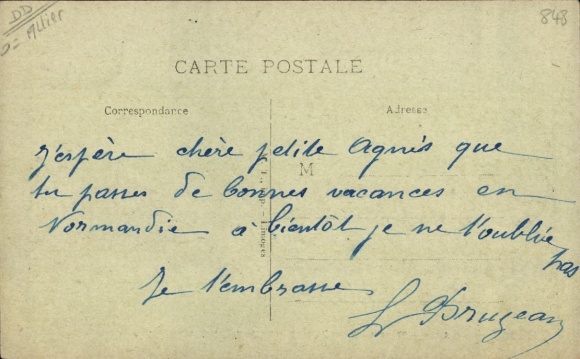 DD
Allier
848
CARTE POSTALE
Correspondance
Adresse
M
J'espère chère petite Agnès que
tu passes de bonnes vacances en
Normandie à bientôt je ne t'oublie
pas
Je t'embrasse
Limoges